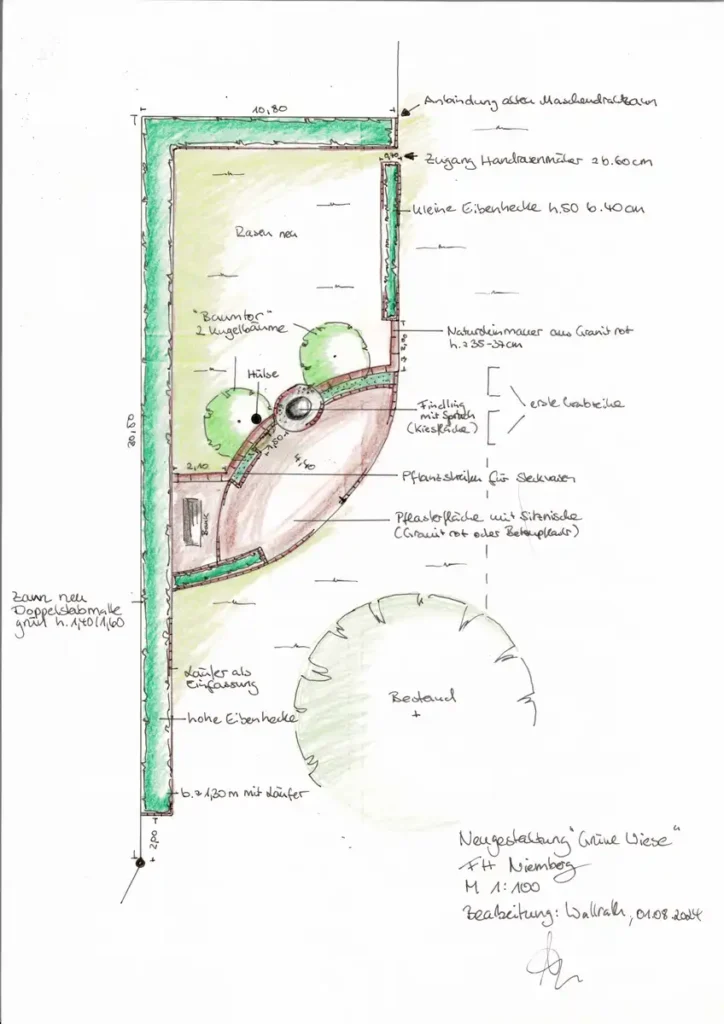 10,80
Anbindung alten Maschendrahtzaun
Zugang Handrasenmäher ≥ b. 60 cm
kleine Eibenhecke h. 50 b. 40 cm
Rasen neu
"Baumtor"
2 Kugelbäume
Hülse
Natursteinmauer aus Granit rot
h. ≥ 35-37cm
erste Grabreihe
Findling
mit Spruch
(Kiesfläche)
1,50
4,40
2,10
Pflanzstreifen für Steckvasen
Pflasterfläche mit Sitznische
(Granit rot oder Betonpflaster)
Bank
Zaun neu
Doppelstabmatte
grün h. 1,40/1,60
Läufer als
Einfassung
hohe Eibenhecke
Bestand
b. ≥ 1,30 m mit Läufer
2,00
Neugestaltung "Grüne Wiese"
FH Niemberg
M 1:100
Bearbeitung: Wallrath, 01.08.2024